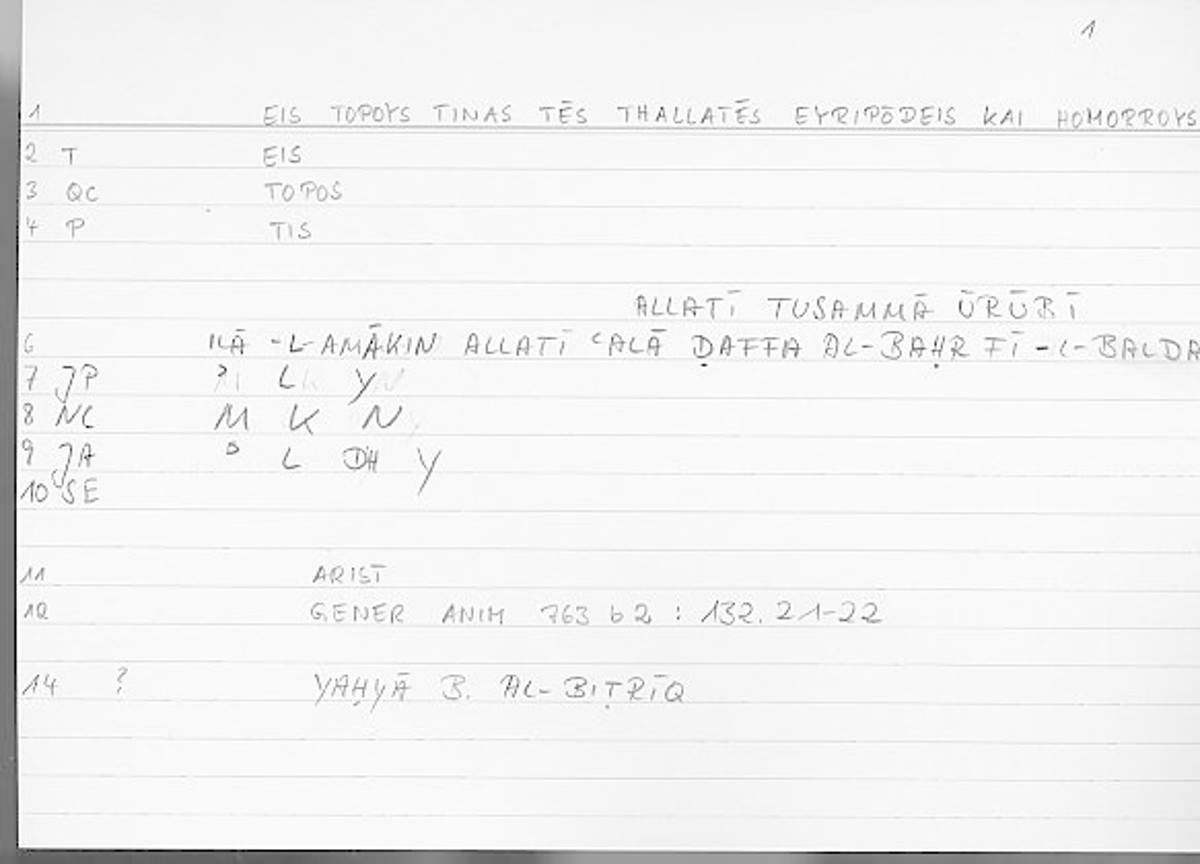 1
1 EIS TOPOYS TINAS TĒS THALLATĒS EYRIPŌDEIS KAI HOMORROYS
2 T EIS
3 QC TOPOS
4 P TIS
ALLATĪ TUSAMMĀ ŪRŪBĪ
6 ILĀ -L-AMĀKIN ALLATĪ ʿALĀ ḌAFFA AL-BAḤR FĪ -L-BALDA
7 JP ʾ L Y
8 NC M K N
9 JA ʾ L DH Y
10 SE
11 ARIST
12 GENER ANIM 763 b 2 : 132. 21-22
14 ? YAḤYĀ B. AL-BIṬRĪQ